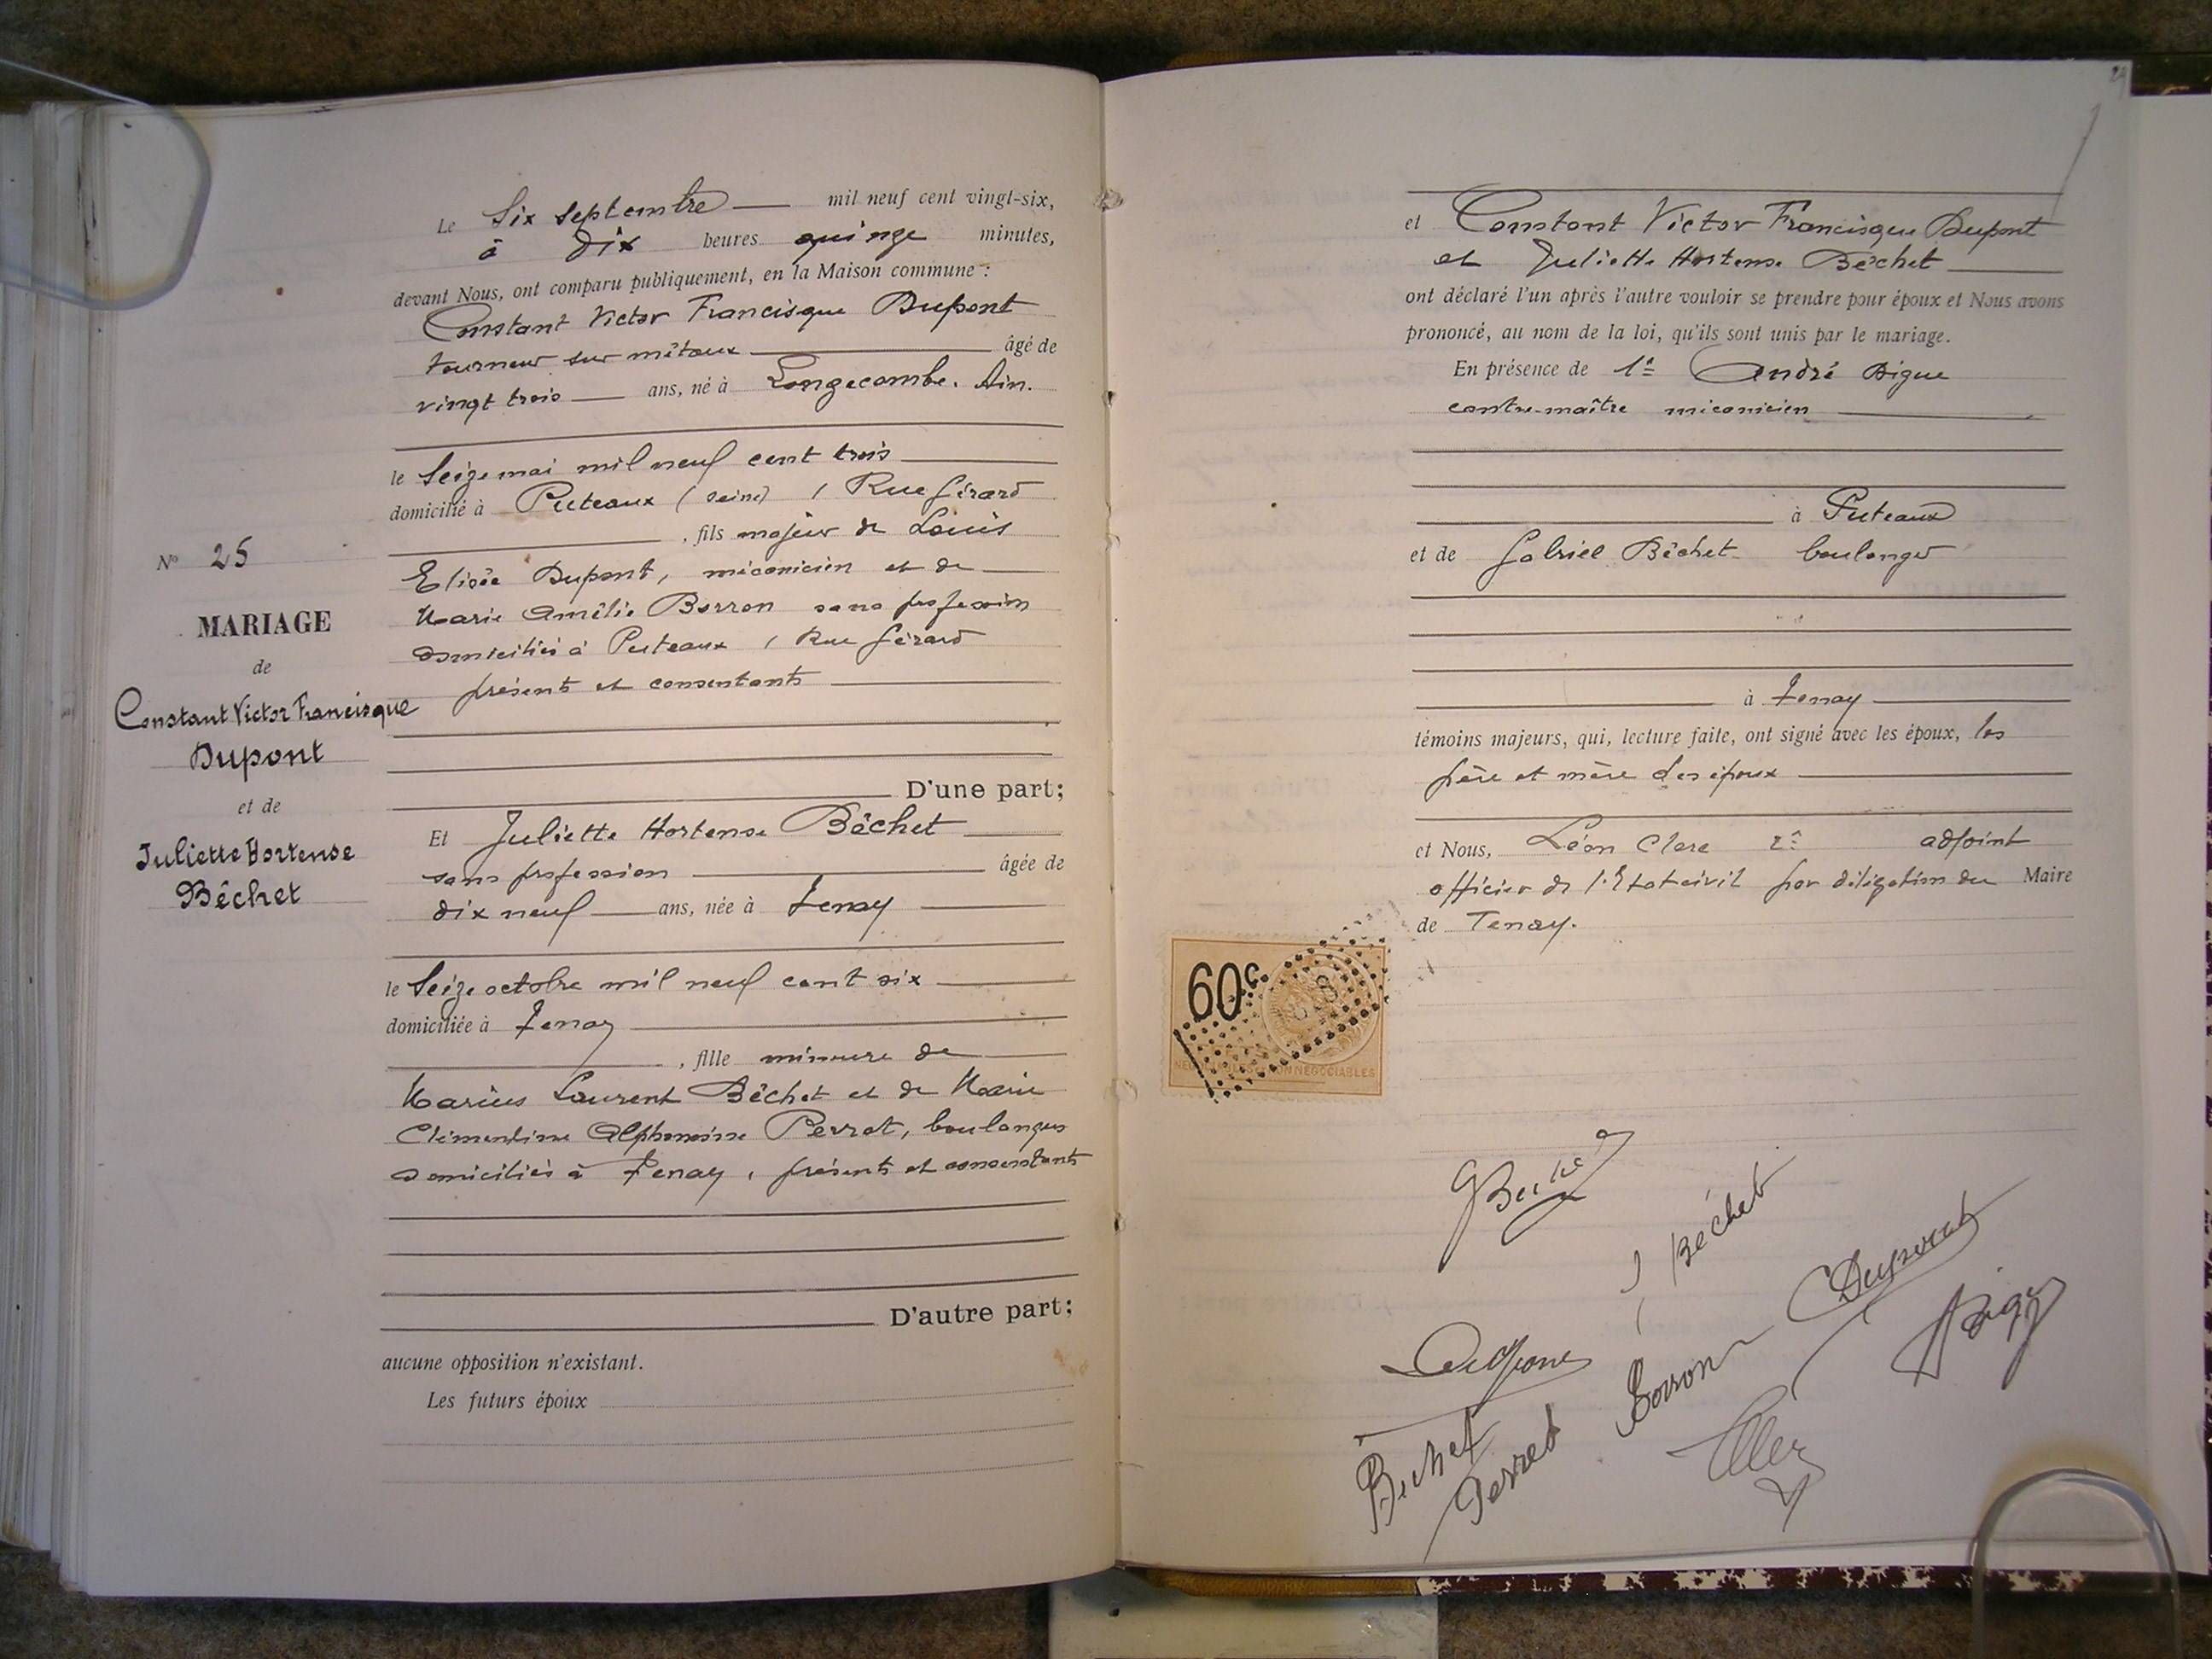 Nº 25
MARIAGE
de
Constant Victor Francisque
Dupont
et de
Juliette Hortense
Béchet
Le Six Septembre mil neuf cent vingt-six,
à Dix heures quinze minutes,
devant Nous, ont comparu publiquement, en la Maison commune :
Constant Victor Francisque Dupont
tourneur sur métaux âgé de
vingt trois ans, né à Longecombe. Ain.
le Seize mai mil neuf cent trois
domicilié à Puteaux (Seine) 1 Rue Gérard
, fils majeur de Louis
Elisée Dupont, mécanicien et de
Marie Amélie Borron sans profession
domiciliés à Puteaux 1 Rue Gérard
présents et consentants
D'une part;
Et Juliette Hortense Béchet
sans profession âgée de
dix neuf ans, née à Tenay
le Seize octobre mil neuf cent six
domiciliée à Tenay
, fille mineure de
Marius Laurent Béchet et de Marie
Clémentine Alphonsine Perrot, boulangers
domiciliés à Tenay, présents et consentants
D'autre part;
aucune opposition n'existant.
Les futurs époux
et Constant Victor Francisque Dupont
et Juliette Hortense Béchet
ont déclaré l'un après l'autre vouloir se prendre pour époux et Nous avons
prononcé, au nom de la loi, qu'ils sont unis par le mariage.
En présence de 1º André Bigue
contre-maître mécanicien
à Puteaux
et de Gabriel Béchet boulanger
à Tenay
témoins majeurs, qui, lecture faite, ont signé avec les époux, les
père et mère des époux
et Nous, Léon Clerc 2e adjoint
officier de l'Etat civil par délégation du Maire
de Tenay.
60c
NON NÉGOCIABLES
J Béchet
Dupont
Borron
Béchet
Perret